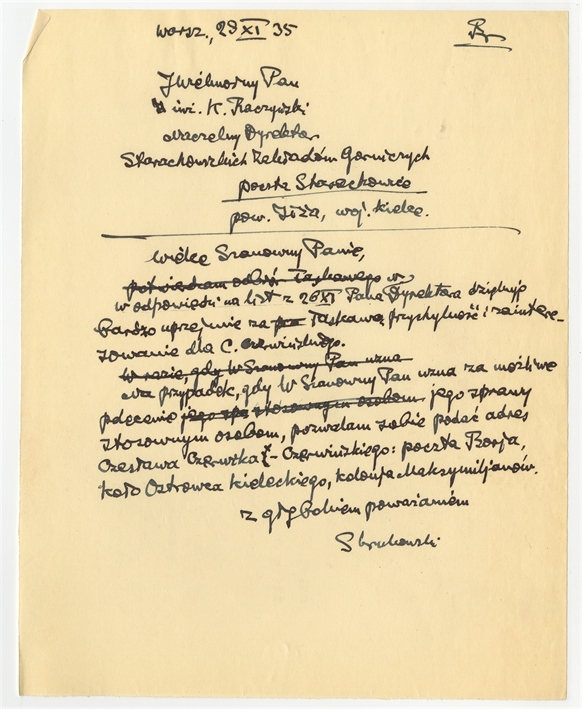 Warsz., 29 XI 35
Br
JWielmożny Pan
inż. K. Raczyński
Naczelny Dyrektor
Starachowickich Zakładów Górniczych
poczta Starachowice
pow. Iłża, woj. kielec.
Wielce Szanowny Panie,
potwierdzam odbiór łaskawego
w odpowiedzi na list z 26 XI Pana Dyrektora dziękuję
bardzo uprzejmie za łaskawą przychylność i zaintere-
sowanie dla C. Czerwińskiego.
W razie, gdy W Szanowny Pan uzna
Na przypadek, gdy W Szanowny Pan uzna za możliwe
polecenie jego spr stosownym osobom jego sprawy
stosownym osobom, pozwalam sobie podać adres
Czesława Czerwika - Czerwińskiego: poczta Boria,
koło Ostrowca kieleckiego, kolonja Maksymiljanów.
z głębokiem poważaniem